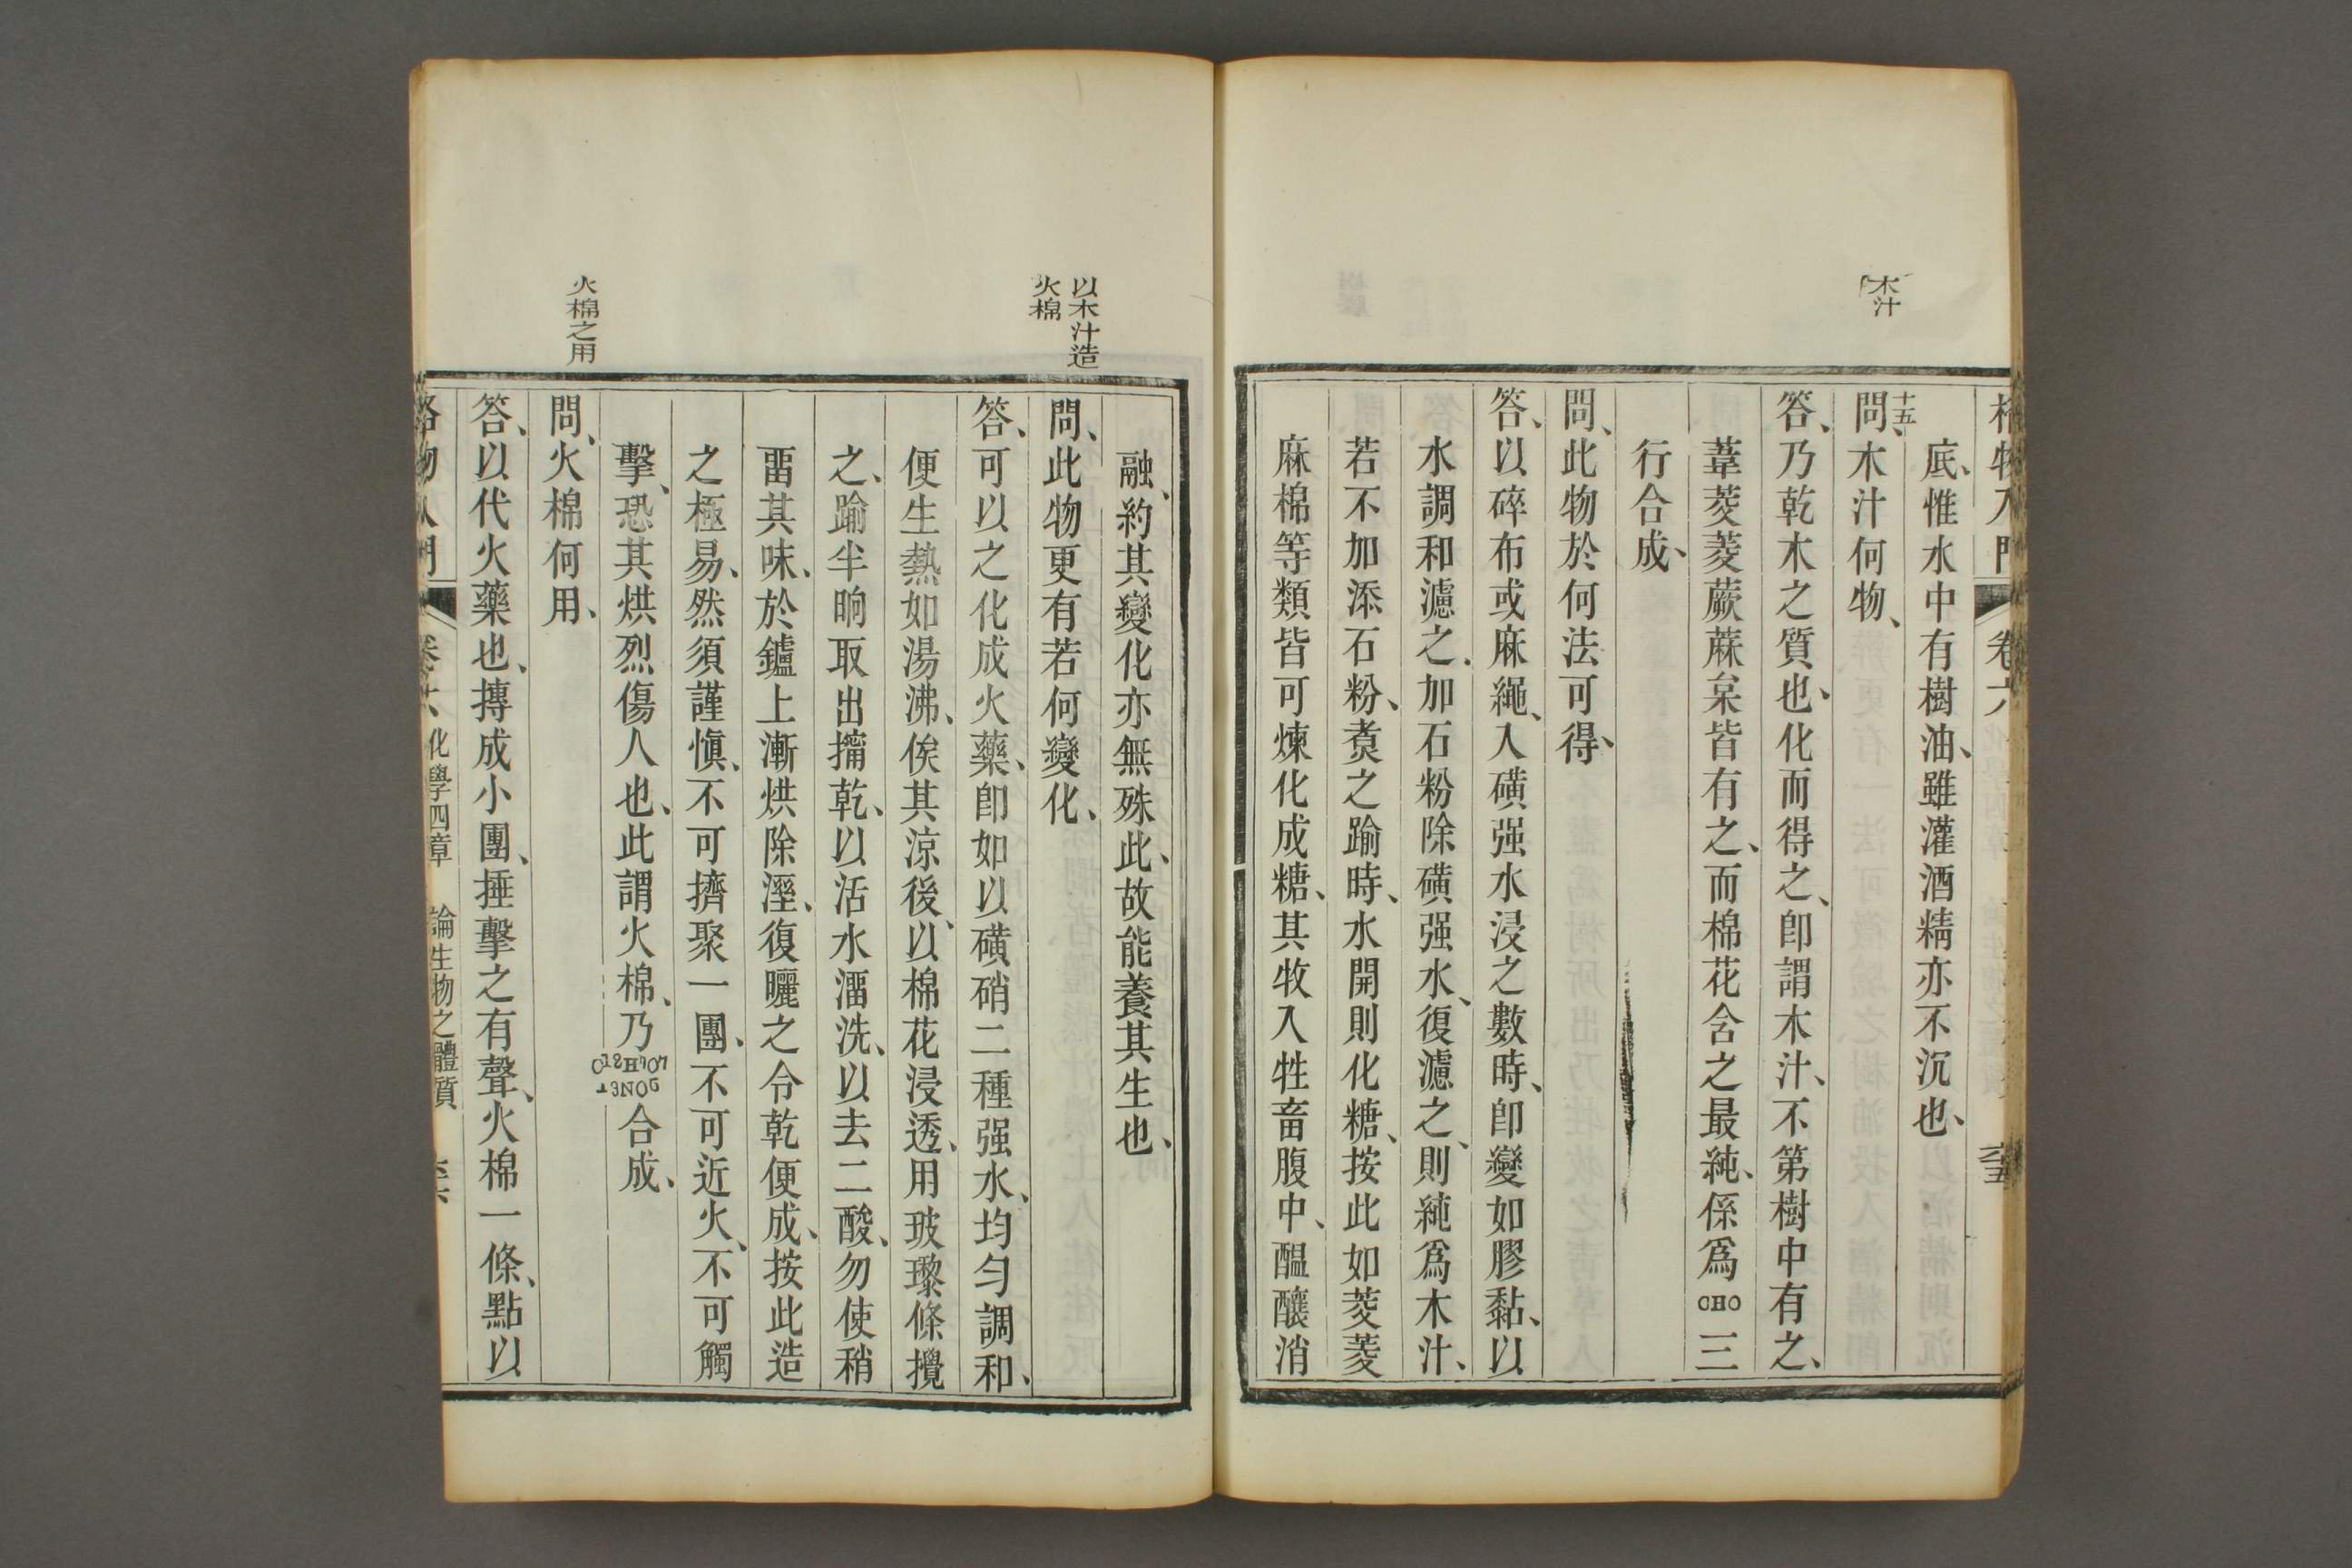 木汁
格物入門 卷六
底、惟水中有樹油、雖灌酒精亦不沉也、
十五
問、木汁何物、
答、乃乾木之質也、化而得之、卽謂木汁、不第樹中有之、
葦茭菱蕨蔴枲皆有之、而棉花含之最純、係爲CHO三
行合成、
問、此物於何法可得、
答、以碎布或麻繩、入磺强水浸之數時、卽變如膠黏、以
水調和濾之、加石粉除磺强水、復濾之、則純爲木汁、
若不加添石粉、煑之踰時、水開則化糖、按此如茭菱
麻棉等類皆可煉化成糖、其牧入牲畜腹中、醞釀消
以木汁造
火棉
火棉之用
融、約其變化亦無殊此、故能養其生也、
問、此物更有若何變化、
答、可以之化成火藥、卽如以磺硝二種强水、均勻調和、
便生熱如湯沸、俟其涼後、以棉花浸透、用玻璨條攪
之、踰半晌取出擰乾、以活水澑洗、以去二酸、勿使稍
畱其味、於鑪上漸烘除溼、復曬之令乾便成、按此造
之極易、然須謹愼、不可擠聚一團、不可近火、不可觸
擊、恐其烘烈傷人也、此謂火棉、乃
合成、
問、火棉何用、
答、以代火藥也、摶成小團、捶擊之有聲、火棉一條、點以
格物入門 卷六 化學四章 論生物之體質